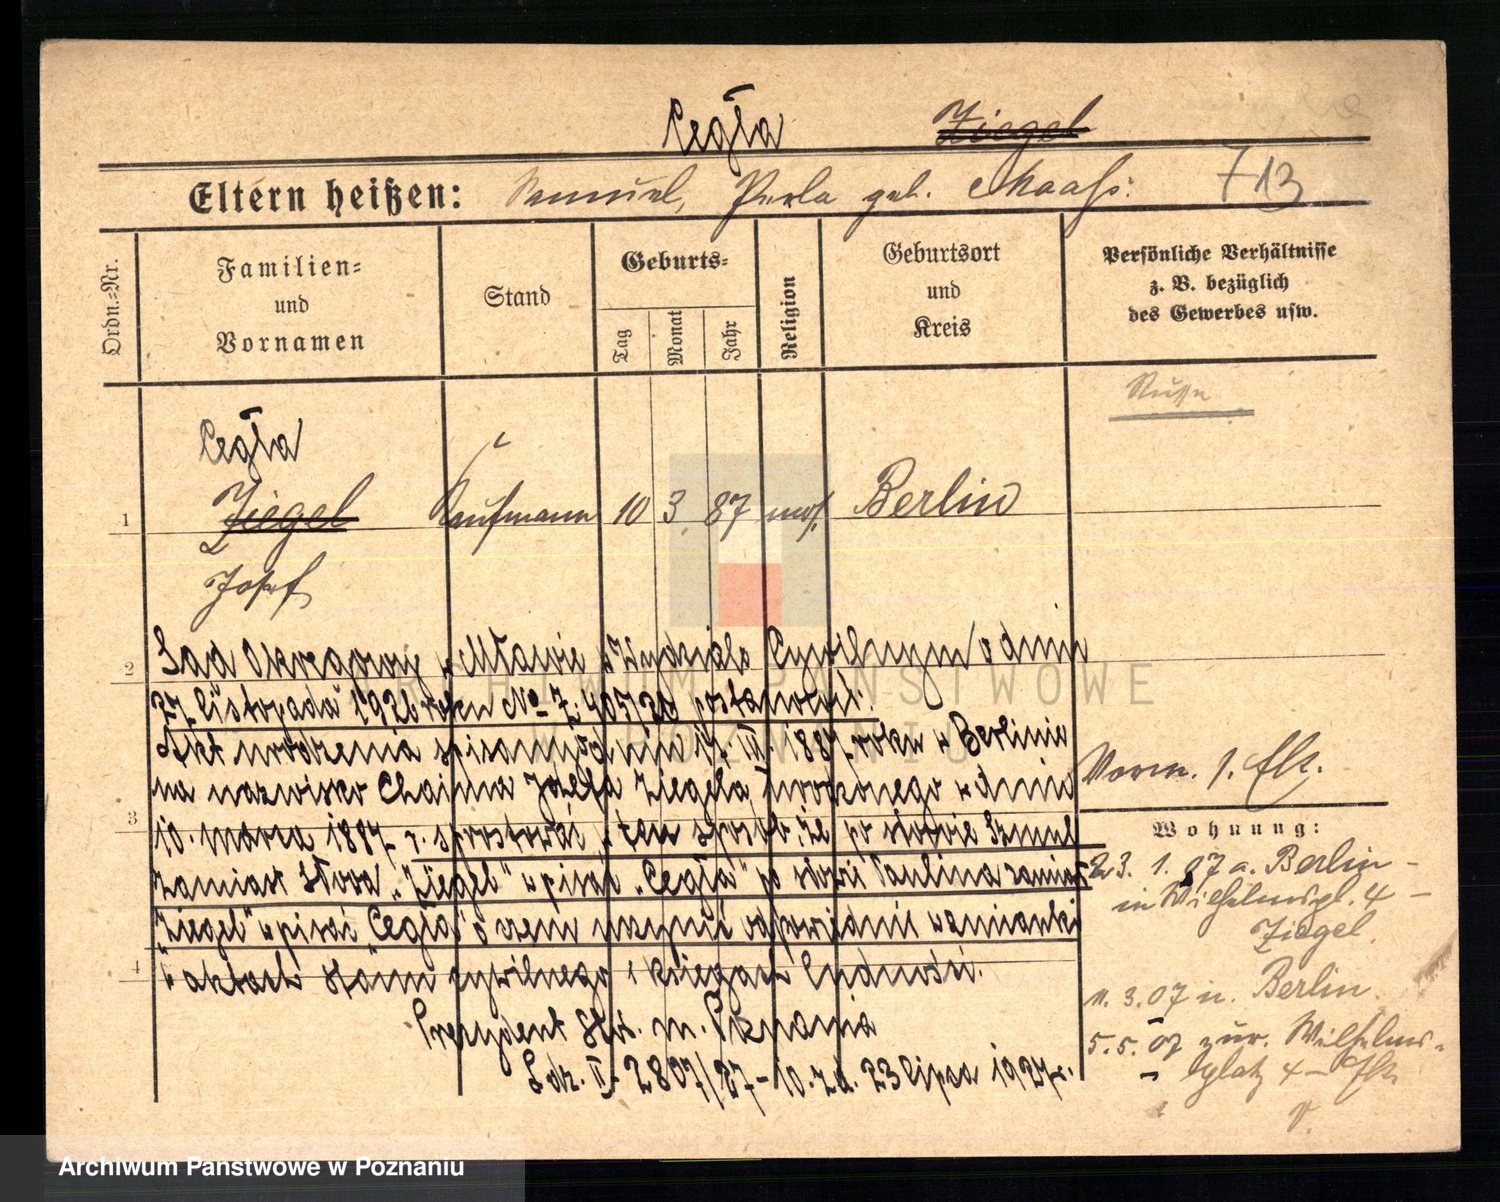 Cegła Ziegel
Eltern heißen: Samuel, Perla geb. Maass. 713
Ordn.=Nr.
Familien=
und
Vornamen
Stand
Geburts=
Tag
Monat
Jahr
Religion
Geburtsort
und
Kreis
Persönliche Verhältnisse
z. B. bezüglich
des Gewerbes usw.
Cegła
1 Ziegel Kaufmann 10 3. 87 mos. Berlin
Josef
2 Sąd Okręgowy w Mławie w Wydziale Cywilnym dnia
27 listopada 1926 roku No Z. 405/26 postanowił:
Akt urodzenia spisany dnia 17. III. 1887 roku w Berlinie
na nazwisko Chaima Josefa Ziegela, urodzonego w dniu
3 10. marca 1887 r. sprostować w ten sposób, że po słowie Szmul
zamiast słowa "Ziegel" wpisać "Cegła" po słowie Paulina zamiast
"Ziegel" wpisać "Cegła" o czem uczynić odpowiednie wzmianki
4 w aktach stanu cywilnego i księgach ludności.
Prezydent Stoł. m. Poznania
L. dz. II - 2807/27 - 10. Z d. 23 lipca 1927 r.
Vorm. 1. Elt.
Wohnung:
23. 1. 07 a. Berlin -
in Wilhelmspl. 4 -
Ziegel.
11. 3. 07 n. Berlin.
5. 5. 07 zur. Wilhelms-
platz 4 - Elt.
ARCHIWUM PAŃSTWOWE
W POZNANIU
Archiwum Państwowe w Poznaniu